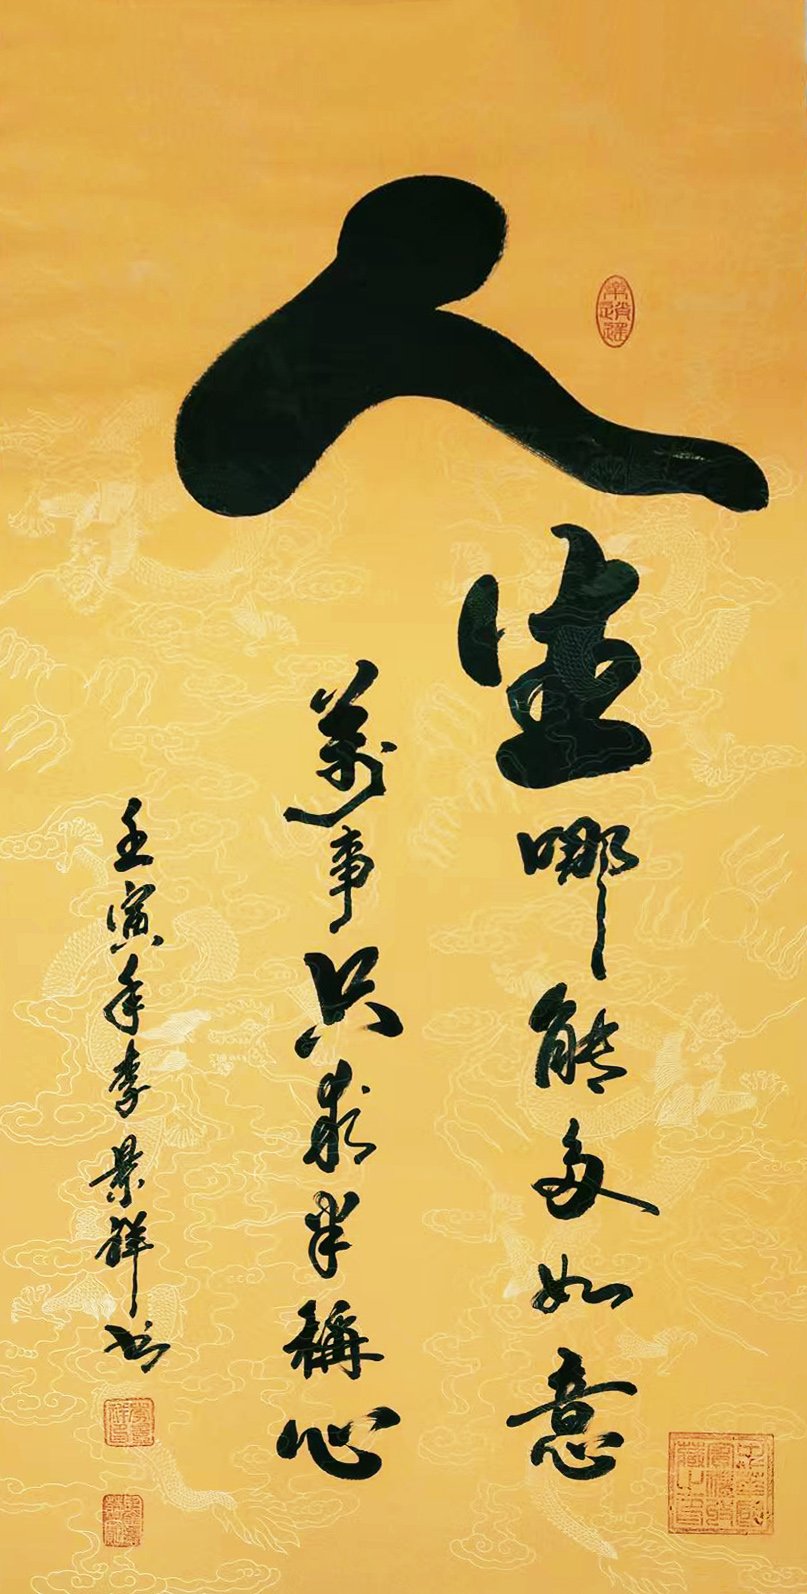 人生哪能多如意
萬事只求半稱心
壬寅年李景祥书